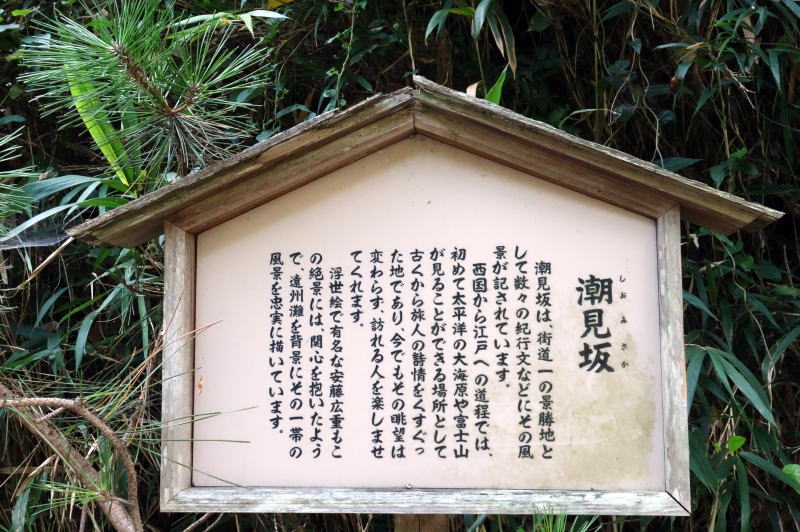 しおみざか
潮見坂
潮見坂は、街道一の景勝地と
して数々の紀行文などにその風
景が記されています。
西国から江戸への道程では、
初めて太平洋の大海原や富士山
が見ることができる場所として
古くから旅人の詩情をくすぐっ
た地であり、今でもその眺望は
変わらず、訪れる人を楽しませ
てくれます。
浮世絵で有名な安藤広重もこ
の絶景には、関心を抱いたよう
で、遠州灘を背景にその一帯の
風景を忠実に描いています。